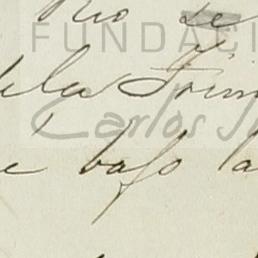 Rio de
FUNDACI
de la Trini
Carlos
e bajo la